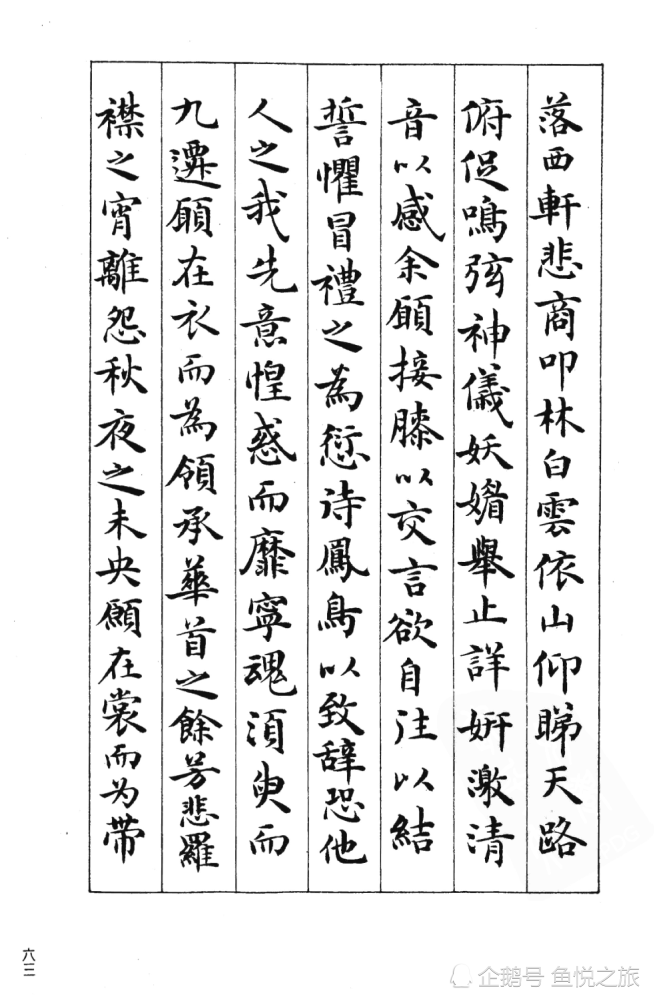 落西軒悲商叩林白雲依山仰睇天路
俯促鳴弦神儀妖媚舉止詳妍激清
音以感余願接膝以交言欲自往以結
誓懼冒禮之為愆待鳳鳥以致辭恐他
人之我先意惶惑而靡寧魂須臾而
九遷願在衣而為領承華首之餘芳悲羅
襟之宵離怨秋夜之未央願在裳而为帶
六三
企鹅号 鱼悦之旅